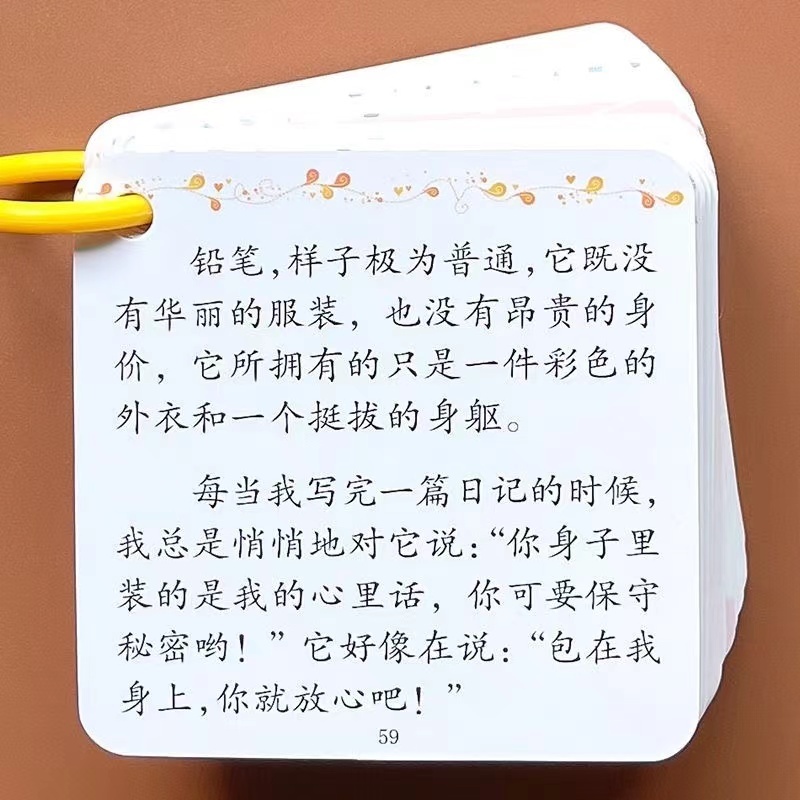 铅笔,样子极为普通,它既没
有华丽的服装，也没有昂贵的身
价，它所拥有的只是一件彩色的
外衣和一个挺拔的身躯。
每当我写完一篇日记的时候,
我总是悄悄地对它说:“你身子里
装的是我的心里话，你可要保守
秘密哟！”它好像在说：“包在我
身上,你就放心吧！”
59